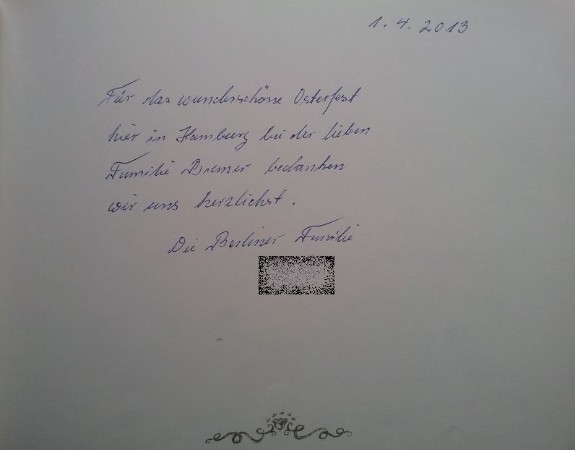 1. 4. 2013
Für das wunderschöne Osterfest
hier in Hamburg bei der lieben
Familie Bremer bedanken
wir uns herzlichst.
Die Berliner Familie